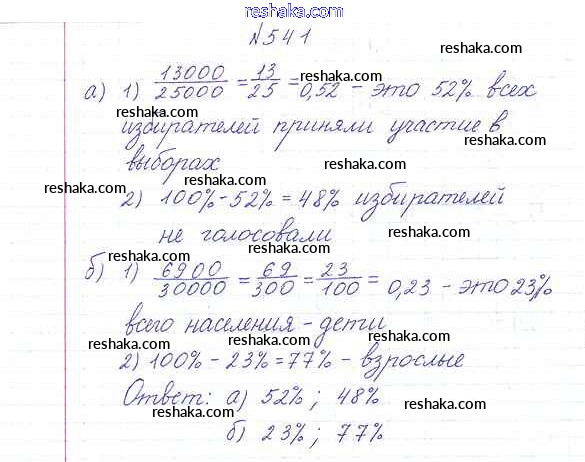 reshaka.com
№541
reshaka.com
а) 1) 13000/25000 = 13/25 = 0,52 - это 52% всех
reshaka.com
reshaka.com
избирателей приняли участие в
выборах
reshaka.com
reshaka.com
2) 100%-52% = 48% избирателей
не голосовали
reshaka.com
reshaka.com
б) 1) 6900/30000 = 69/300 = 23/100 = 0,23 - это 23%
reshaka.com
всего населения - дети
reshaka.com
reshaka.com
2) 100% - 23% = 77% - взрослые
reshaka.com
Ответ: а) 52% ; 48%
reshaka.com
reshaka.com
б) 23% ; 77%
reshaka.com